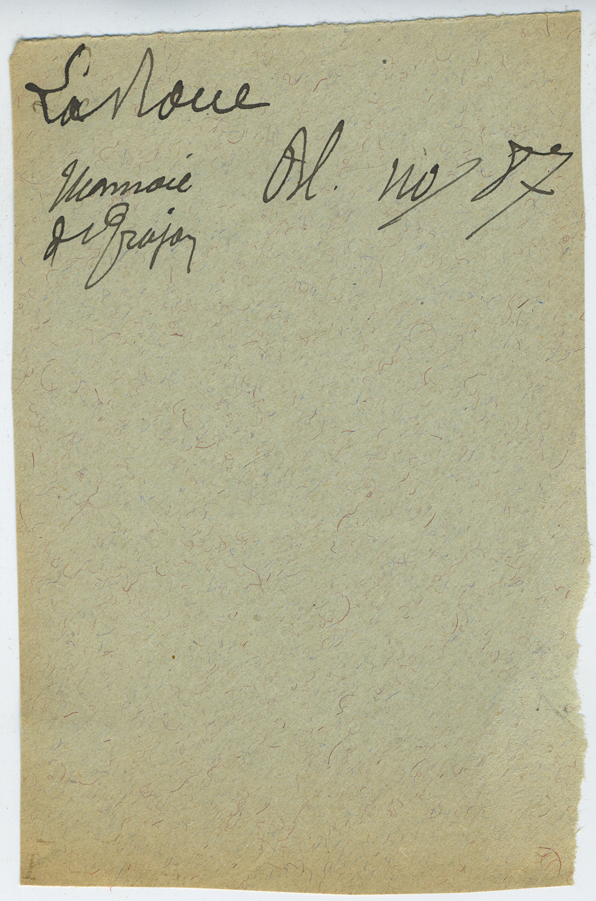 La Roue
Monnaie Bl. no 87
de Trajan